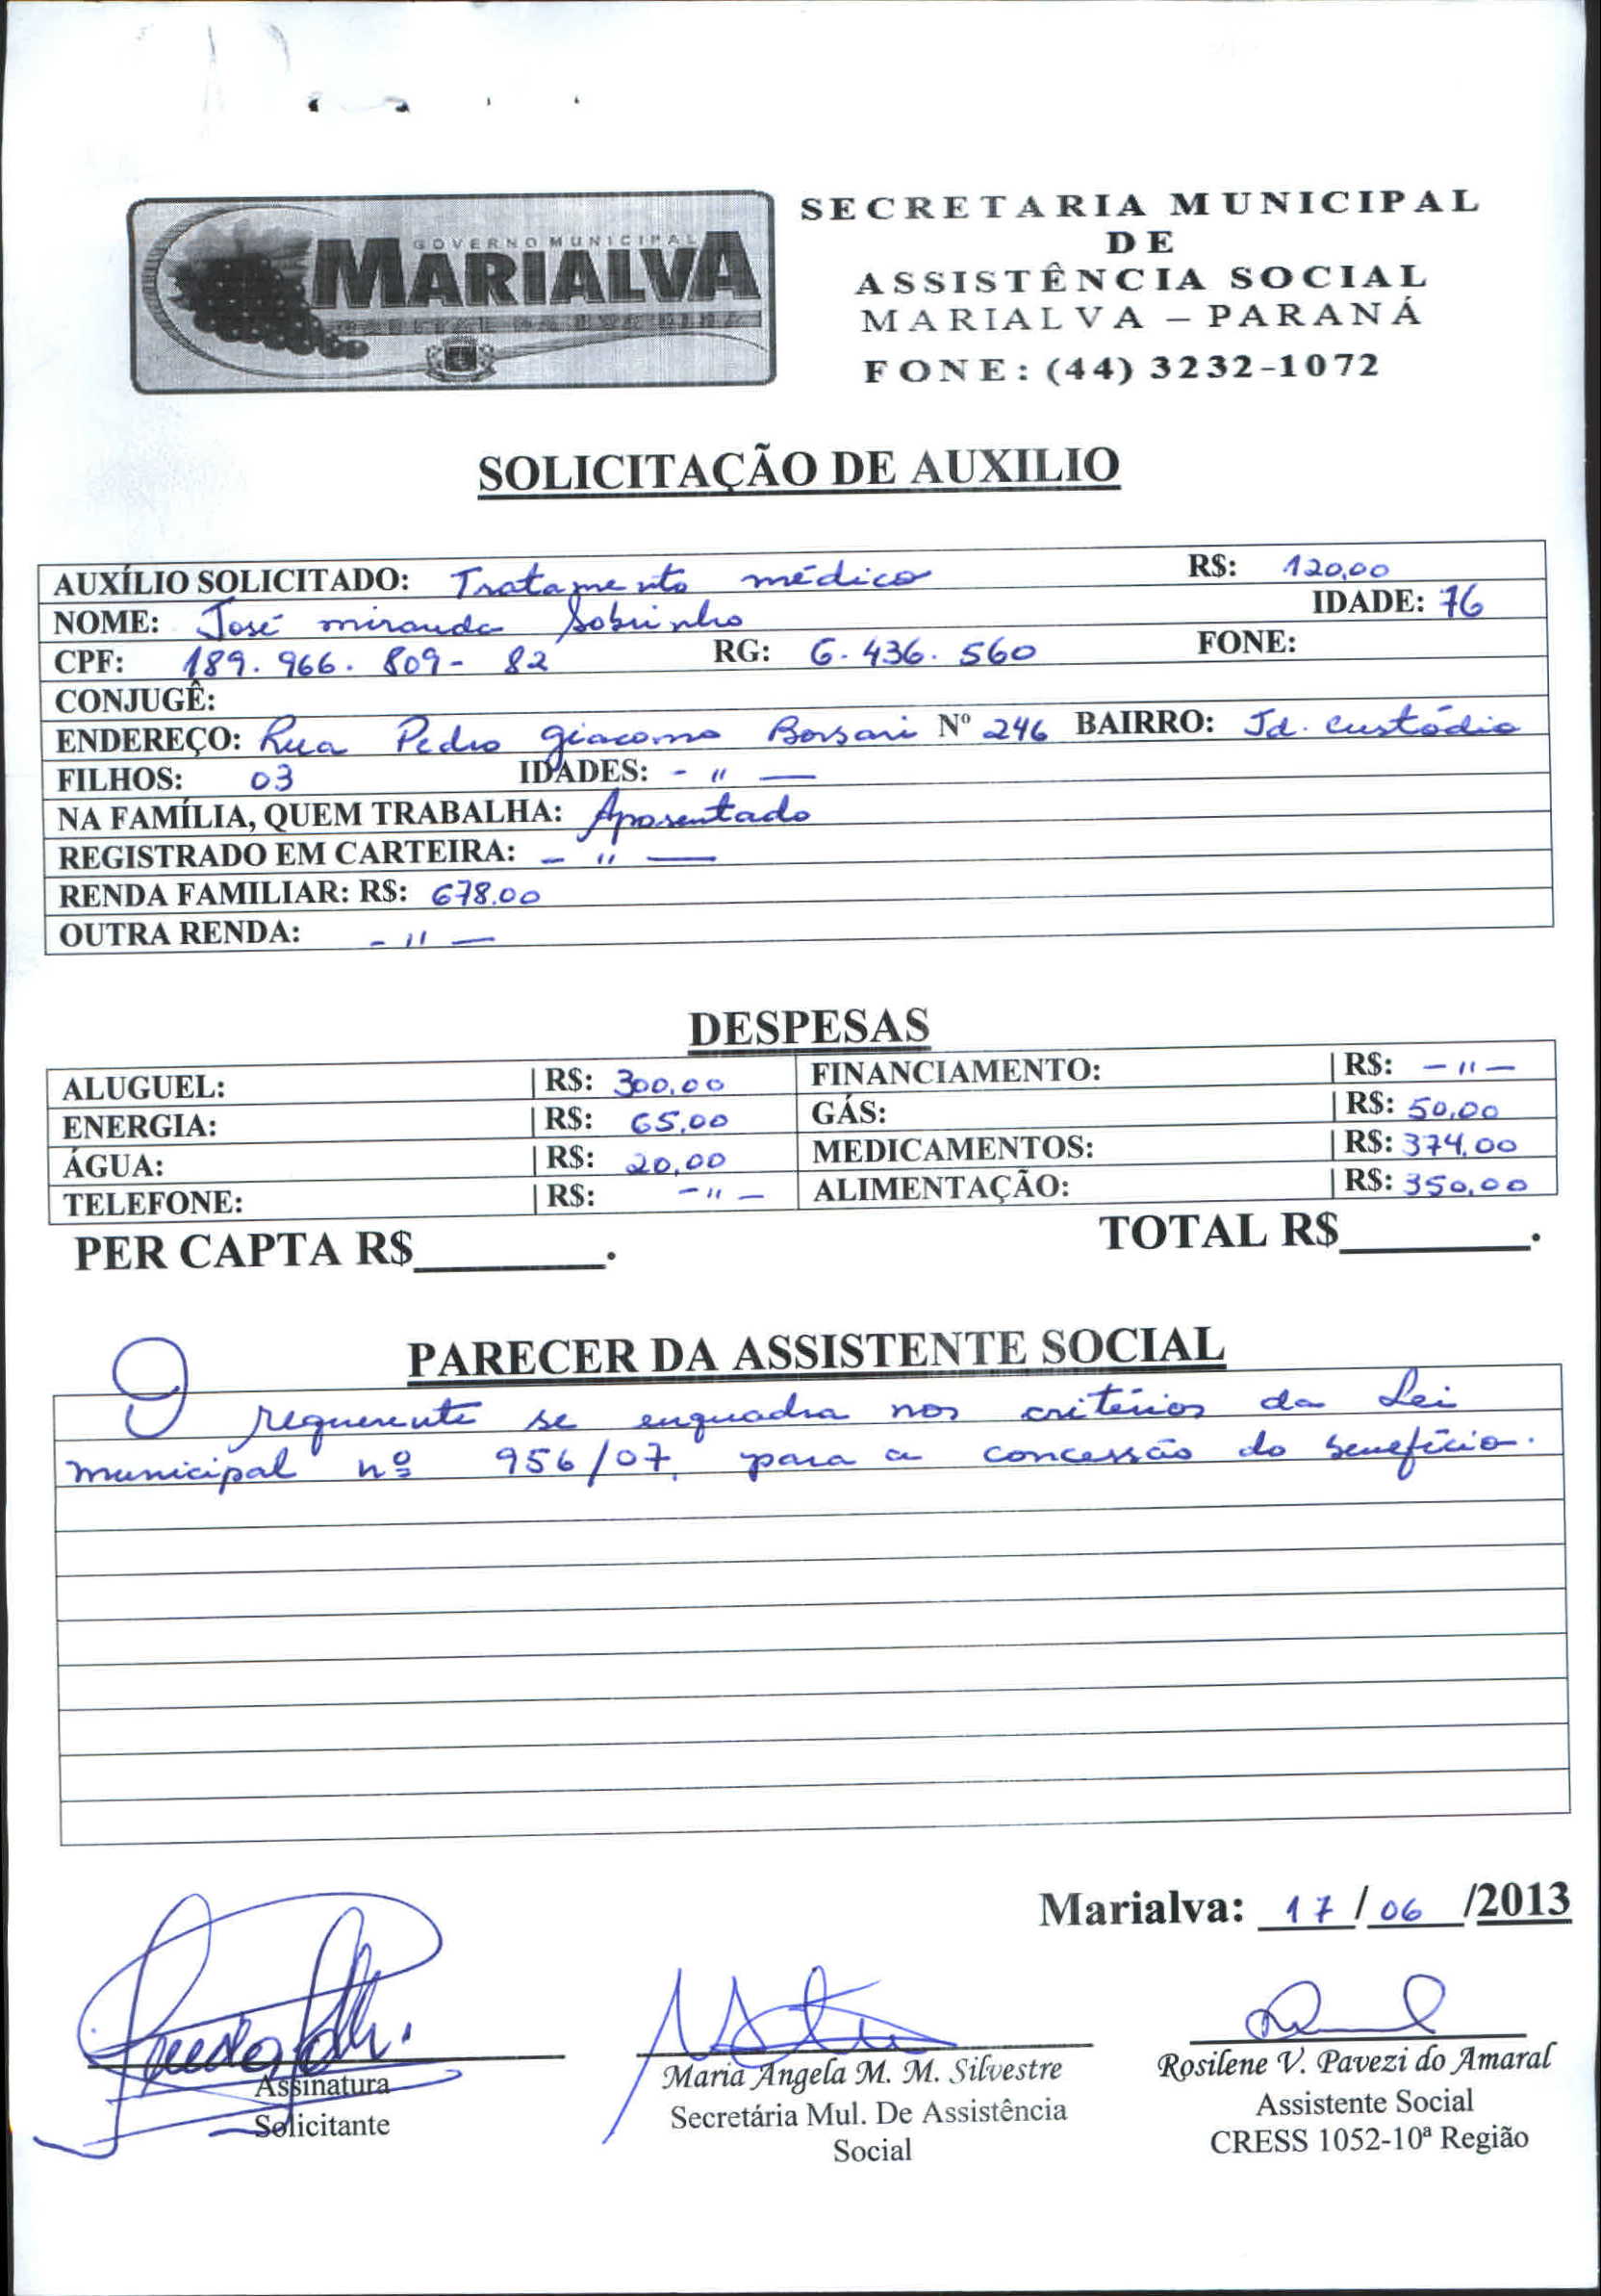 GOVERNO MUNICIPAL
MARIALVA
SECRETARIA MUNICIPAL
DE
ASSISTÊNCIA SOCIAL
MARIALVA – PARANÁ
FONE: (44) 3232-1072
SOLICITAÇÃO DE AUXILIO
AUXÍLIO SOLICITADO: Tratamento médico R$: 120,00
NOME: José miranda Sobrinho IDADE: 76
CPF: 189.966.809-82 RG: 6.436.560 FONE:
CONJUGÊ:
ENDEREÇO: Rua Pedro Giacomo Borsari Nº 246 BAIRRO: Jd. Custódio
FILHOS: 03 IDADES: - " —
NA FAMÍLIA, QUEM TRABALHA: Aposentado
REGISTRADO EM CARTEIRA: - " —
RENDA FAMILIAR: R$: 678.00
OUTRA RENDA: - " —
DESPESAS
ALUGUEL: | R$: 300,00 FINANCIAMENTO: | R$: - " -
ENERGIA: | R$: 65,00 GÁS: | R$: 50,00
ÁGUA: | R$: 20,00 MEDICAMENTOS: | R$: 374,00
TELEFONE: | R$: - " - ALIMENTAÇÃO: | R$: 350,00
PER CAPTA R$________. TOTAL R$________.
PARECER DA ASSISTENTE SOCIAL
O requerente se enquadra nos critérios da Lei
municipal nº 956/07, para a concessão do benefício.
Marialva: 17/06/2013
Assinatura
Solicitante
Maria Ângela M. M. Silvestre
Secretária Mul. De Assistência
Social
Rosilene V. Pavezi do Amaral
Assistente Social
CRESS 1052-10ª Região